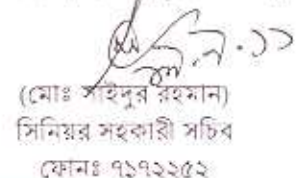 (মোঃ সাইদুর রহমান)
সিনিয়র সহকারী সচিব
ফোনঃ ৭১৭২২৫২